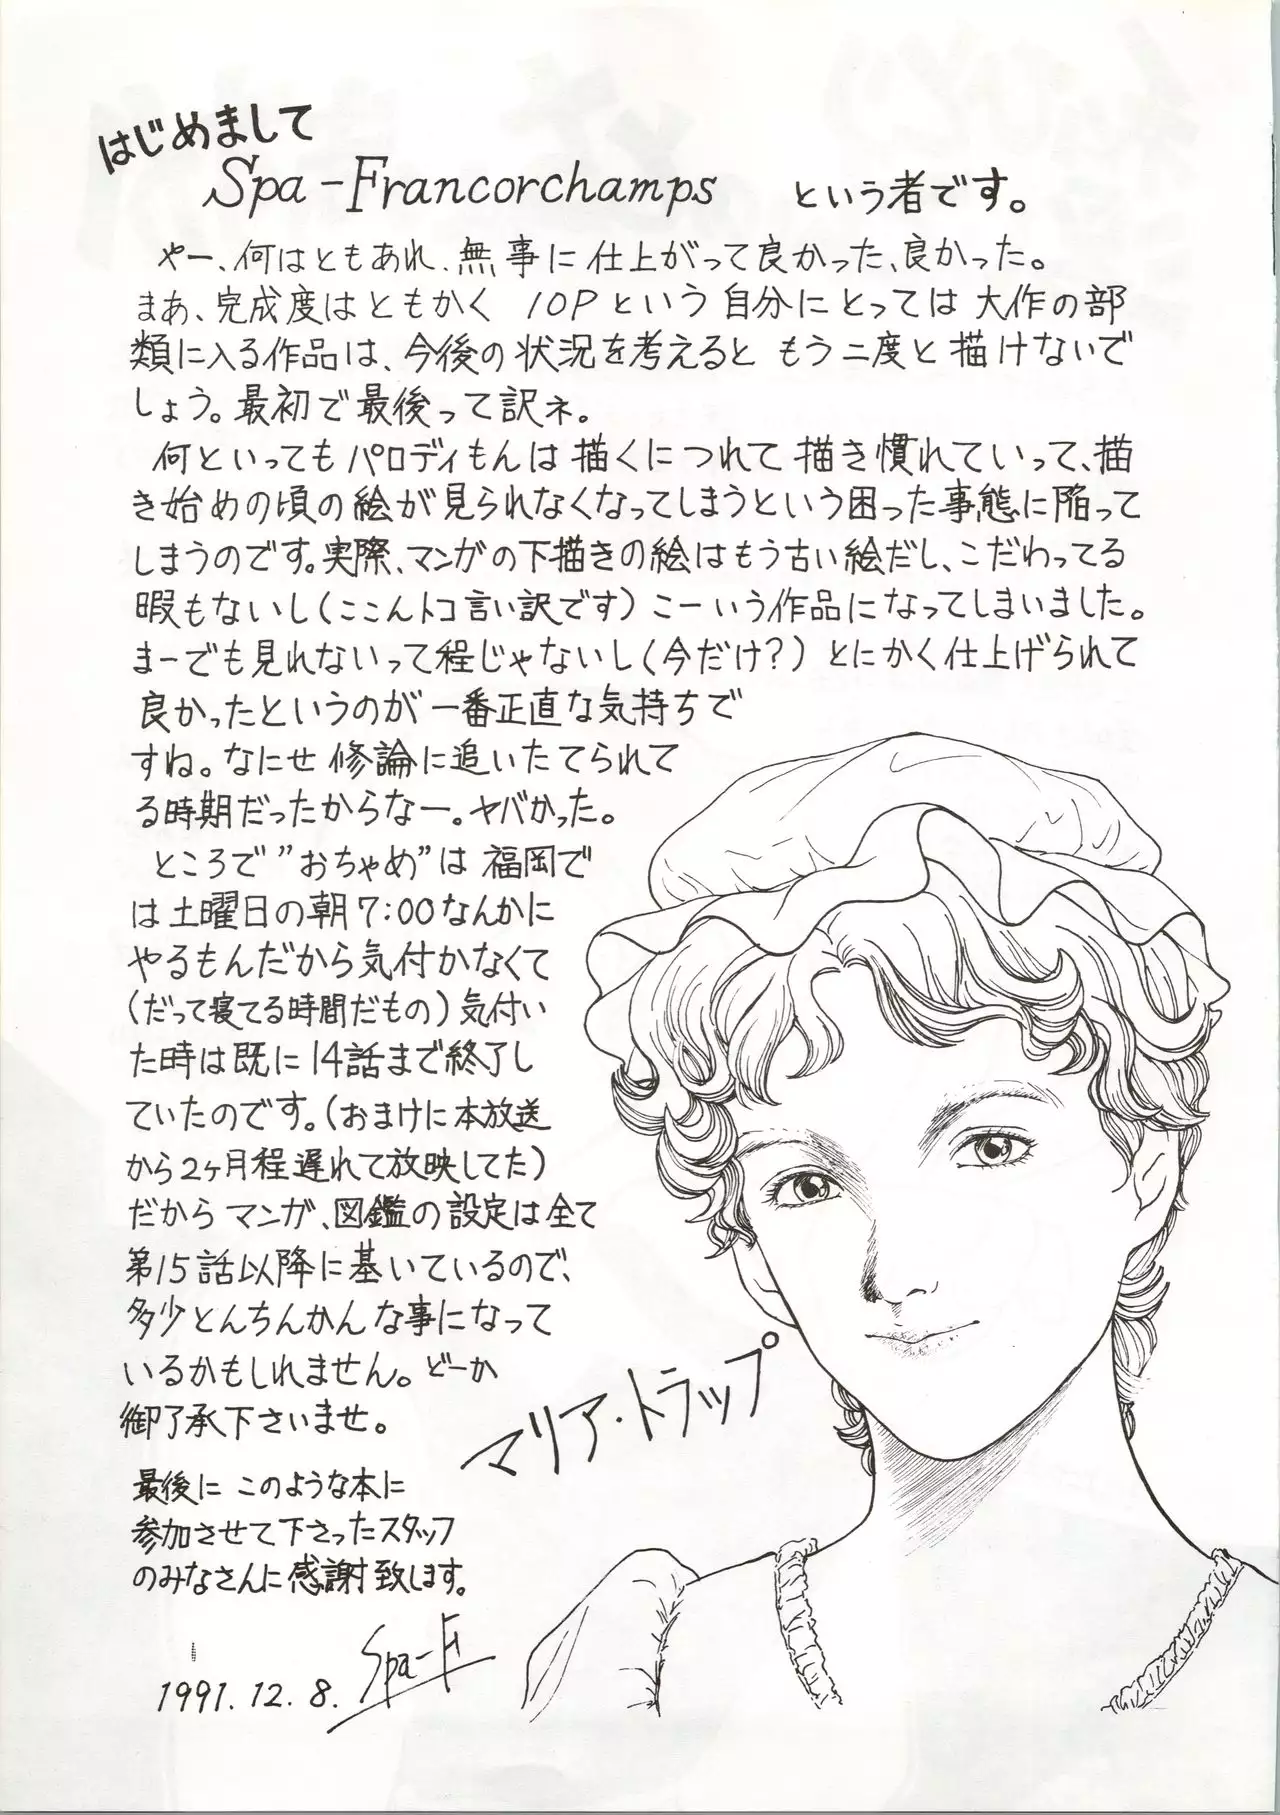 はじめまして
Spa-Francorchamps という者です。
やー、何はともあれ、無事に仕上がって良かった、良かった。
まあ、完成度はともかく 10Pという自分にとっては大作の部
類に入る作品は、今後の状況を考えると もう二度と描けないで
しょう。最初で最後って訳ネ。
何といってもパロディもんは描くにつれて描き慣れていって、描
き始めの頃の絵が見られなくなってしまうという困った事態に陥って
しまうのです。実際、マンガの下描きの絵はもう古い絵だし、こだわってる
暇もないし(ここんトコ言い訳です)こーいう作品になってしまいました。
まーでも見れないって程じゃないし(今だけ?)とにかく仕上げられて
良かったというのが一番正直な気持ちで
すね。なにせ修論に追いたてられて
る時期だったからなー。ヤバかった。
ところで"おちゃめ"は福岡で
は土曜日の朝7:00なんかに
やるもんだから気付かなくて
(だって寝てる時間だもの)気付い
た時は既に14話まで終了し
ていたのです。(おまけに本放送
から2ヶ月程遅れて放映してた)
だからマンガ、図鑑の設定は全て
第15話以降に基いているので、
多少とんちんかんな事になって
いるかもしれません。どーか
御了承下さいませ。
最後に このような本に
参加させて下さったスタッフ
のみなさんに感謝致します。
1991.12.8. Spa-F
マリア・トラップ